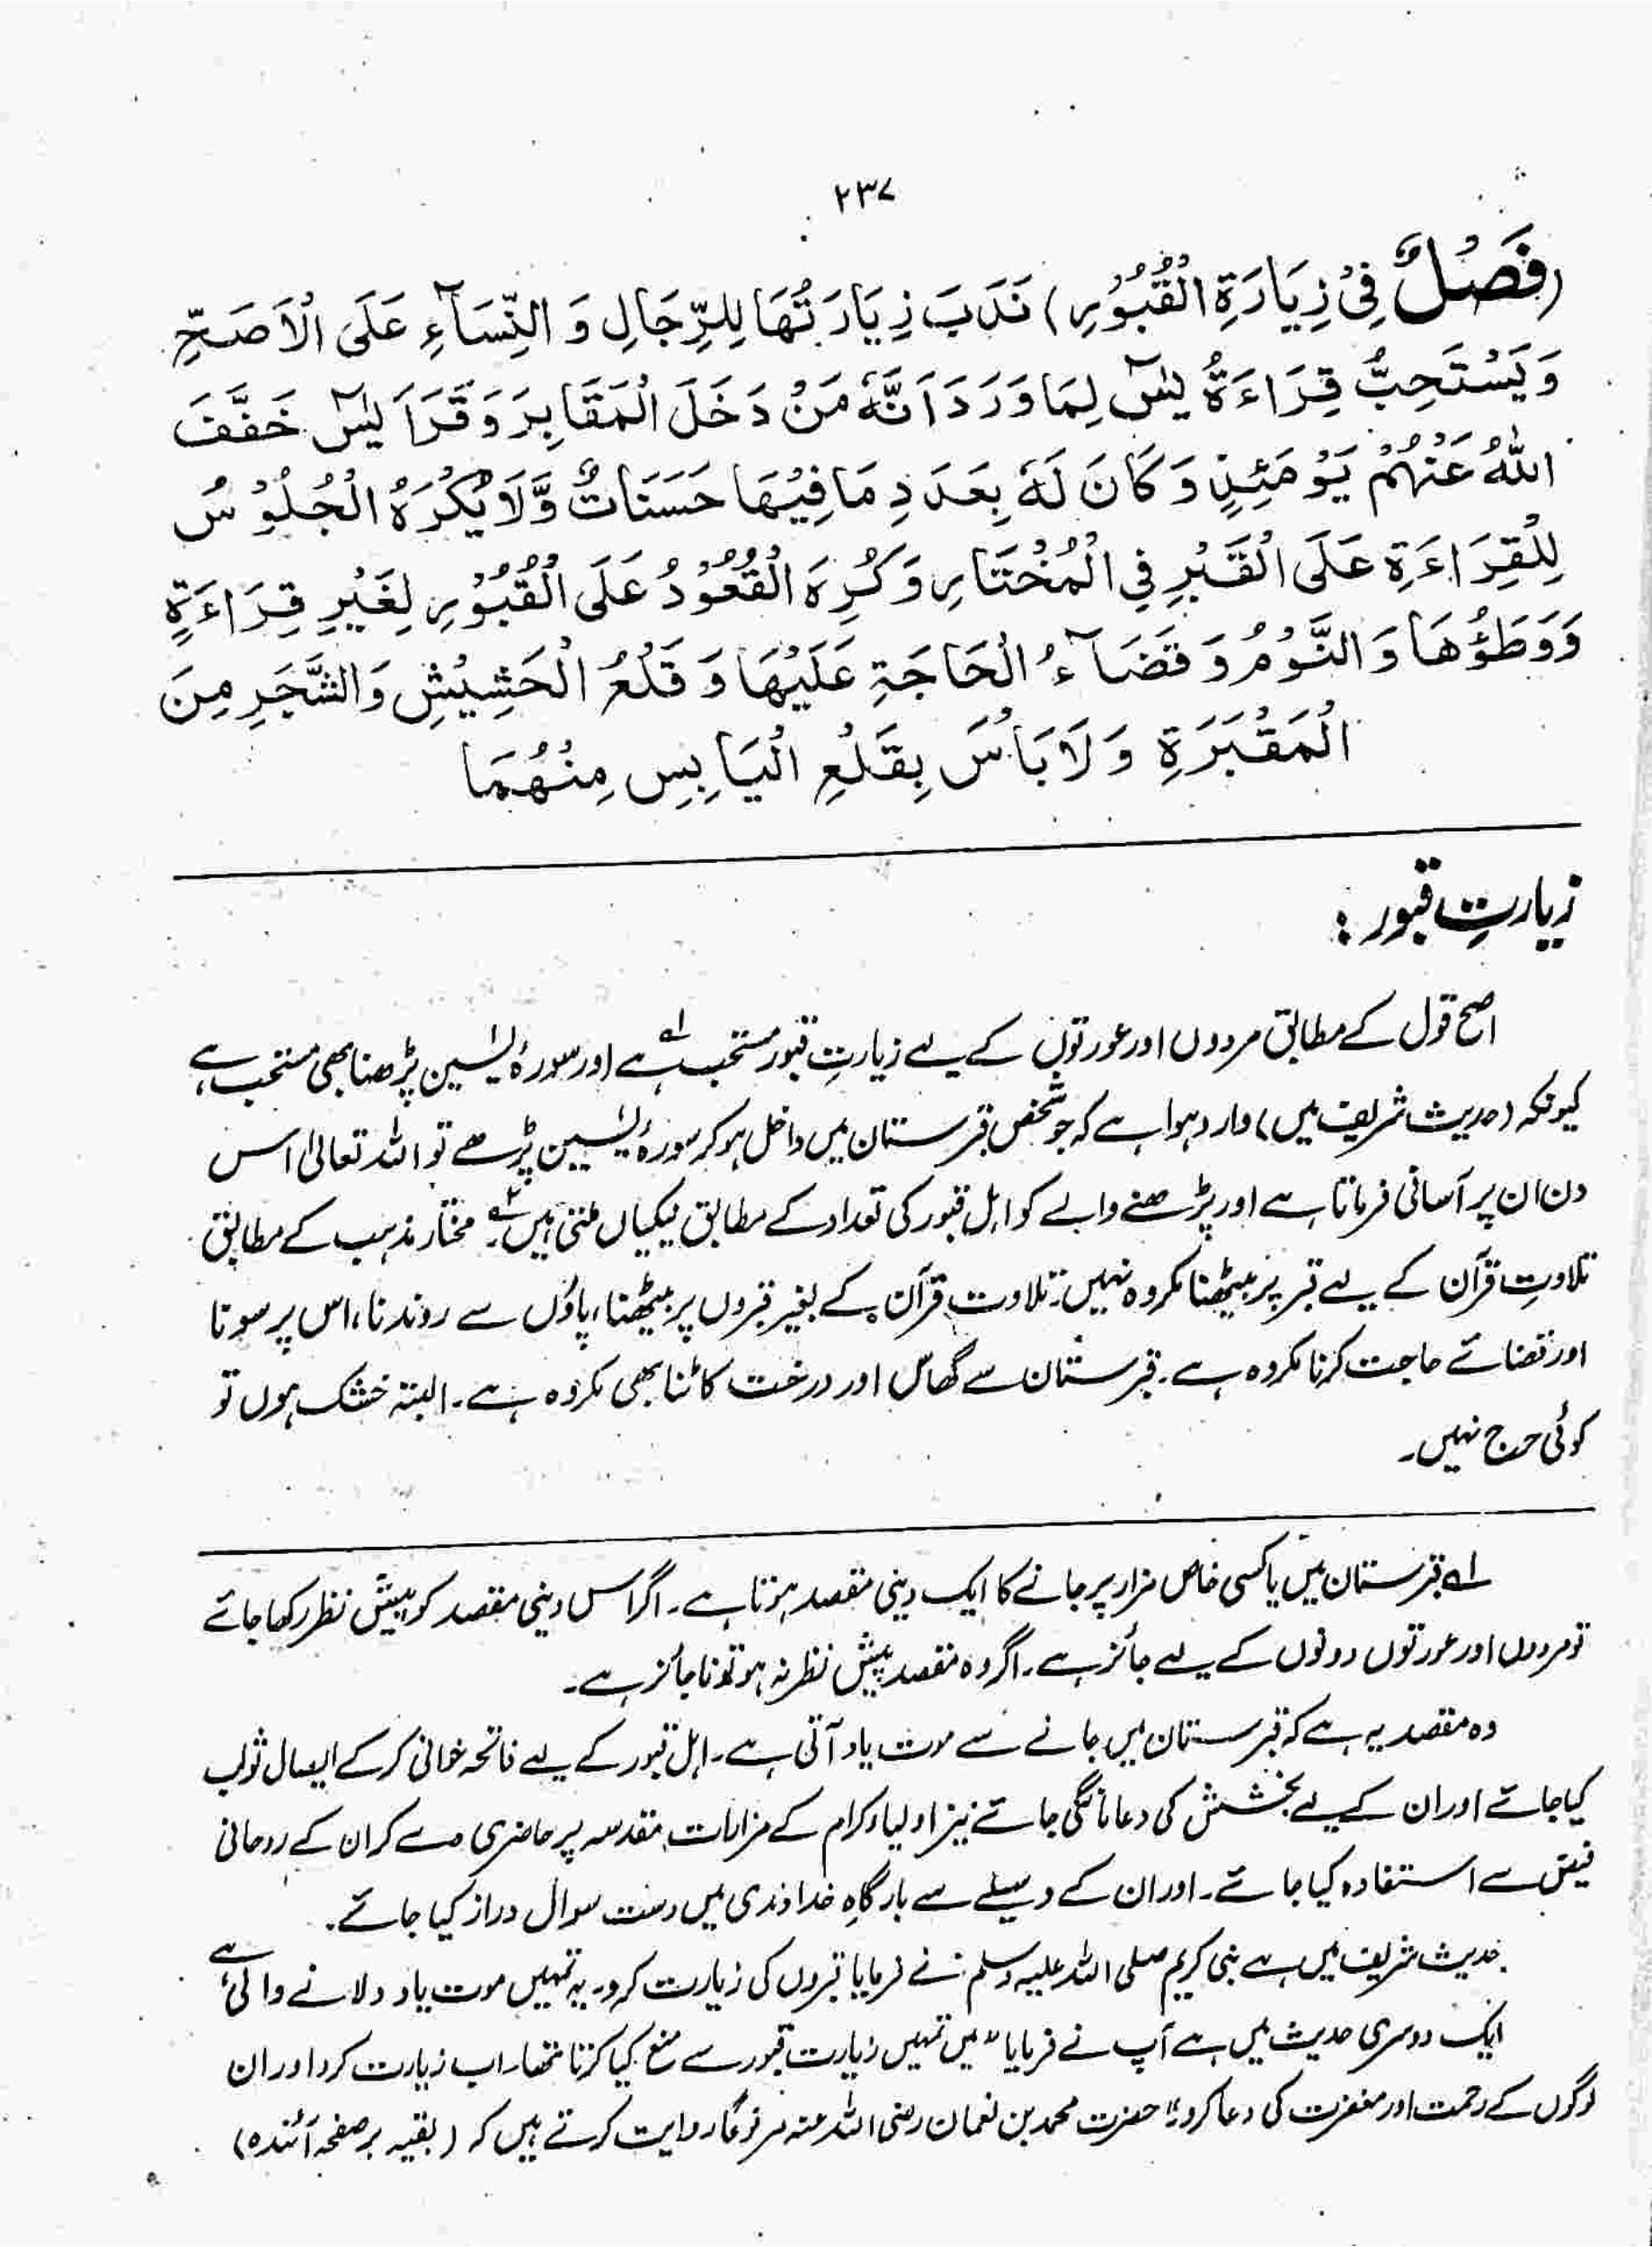 ۲۳۷
(فَصْلٌ فِیْ زِیَارَةِ الْقُبُوْرِ) نَدَبَ زِیَارَتُهَا لِلرِّجَالِ وَ النِّسَآءِ عَلَی الْاَصَحِّ
وَیَسْتَحِبُّ قِرَاءَةُ یٰسٓ لِمَا وَرَدَ اَنَّهٗ مَنْ دَخَلَ الْمَقَابِرَ وَقَرَاَ یٰسٓ خَفَّفَ
اللهُ عَنْهُمْ یَوْمَئِذٍ وَکَانَ لَهٗ بِعَدَدِ مَا فِیْهَا حَسَنَاتٌ وَّلَا یُکْرَهُ الْجُلُوْسُ
لِلْقِرَاءَةِ عَلَی الْقَبْرِ فِی الْمُخْتَارِ وَکُرِهَ الْقُعُوْدُ عَلَی الْقُبُوْرِ لِغَیْرِ قِرَاءَةٍ
وَوَطَؤُهَا وَالنَّوْمُ وَقَضَآءُ الْحَاجَةِ عَلَیْهَا وَقَلْعُ الْحَشِیْشِ وَالشَّجَرِ مِنَ
الْمَقْبَرَةِ وَلَا بَاْسَ بِقَلْعِ الْیَابِسِ مِنْهُمَا
زیارتِ قبور :
اصح قول کے مطابق مردوں اور عورتوں کے لیے زیارتِ قبور مستحب ہے لہ اور سورۂ یٰسین پڑھنا بھی مستحب ہے
کیونکہ (حدیث شریف میں) وارد ہوا ہے کہ جو شخص قبرستان میں داخل ہو کر سورۂ یٰسین پڑھے تو اللہ تعالیٰ اس
دن ان پر آسانی فرماتا ہے اور پڑھنے والے کو اہل قبور کی تعداد کے مطابق نیکیاں ملتی ہیں۔ ۲ہ مختار مذہب کے مطابق
تلاوتِ قرآن کے لیے قبر پر بیٹھنا مکروہ نہیں۔ تلاوتِ قرآن کے بغیر قبروں پر بیٹھنا، پاؤں سے روندنا، اس پر سونا
اور قضائے حاجت کرنا مکروہ ہے۔ قبرستان سے گھاس اور درخت کاٹنا بھی مکروہ ہے۔ البتہ خشک ہوں تو
کوئی حرج نہیں۔
لہ قبرستان میں یا کسی خاص مزار پر جانے کا ایک دینی مقصد ہوتا ہے۔ اگر اس دینی مقصد کو پیش نظر رکھا جائے
تو مردوں اور عورتوں دونوں کے لیے جائز ہے۔ اگر وہ مقصد پیش نظر نہ ہو تو ناجائز ہے۔
وہ مقصد یہ ہے کہ قبرستان میں جانے سے موت یاد آتی ہے۔ اہل قبور کے لیے فاتحہ خوانی کر کے ایصال ثواب
کیا جائے اور ان کے لیے بخشش کی دعا مانگی جائے نیز اولیاء کرام کے مزارات مقدسہ پر حاضری دے کر ان کے روحانی
فیض سے استفادہ کیا جائے۔ اور ان کے وسیلے سے بارگاہِ خداوندی میں دست سوال دراز کیا جائے۔
حدیث شریف میں ہے نبی کریم صلی اللہ علیہ وسلم نے فرمایا قبروں کی زیارت کرو۔ یہ تمہیں موت یاد دلانے والی ہے
ایک دوسری حدیث میں ہے آپ نے فرمایا "میں تمہیں زیارت قبور سے منع کیا کرتا تھا۔ اب زیارت کرو اور ان
لوگوں کے رحمت اور مغفرت کی دعا کرو" حضرت محمد بن نعمان رضی اللہ عنہ مرفوعًا روایت کرتے ہیں کہ (بقیہ بر صفحہ آئندہ)